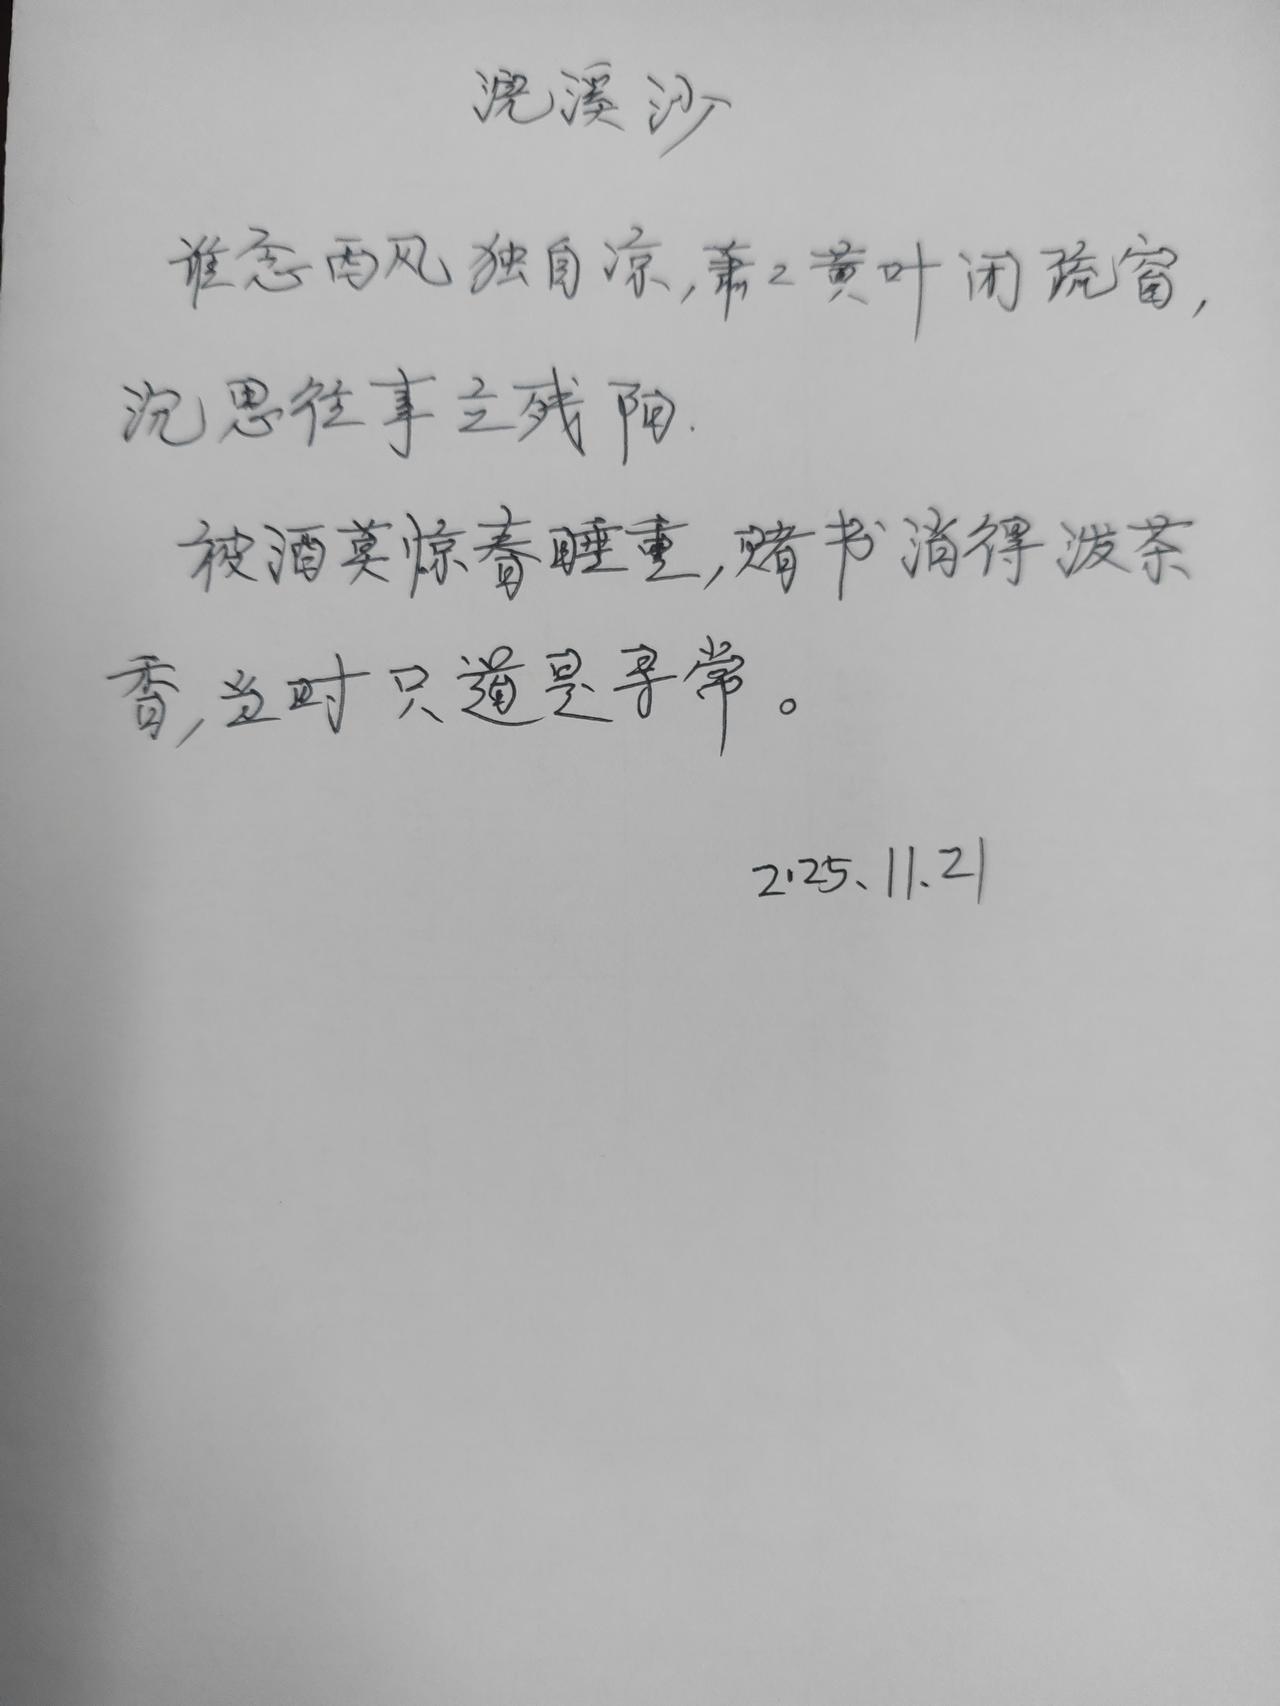 浣溪沙
谁念西风独自凉,萧々黄叶闭疏窗,
沉思往事立残阳.
被酒莫惊春睡重,赌书消得泼茶
香,当时只道是寻常。
2025、11.21